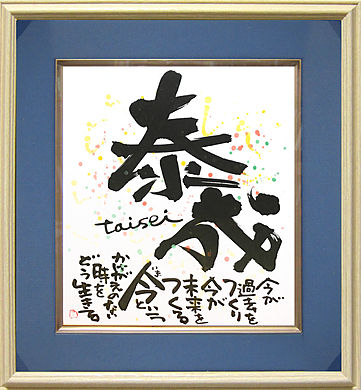 泰成
taisei
今が
過去を
つくり
今が
未来を
つくる
今という
いま
かけがえのない
時を
どう生きる